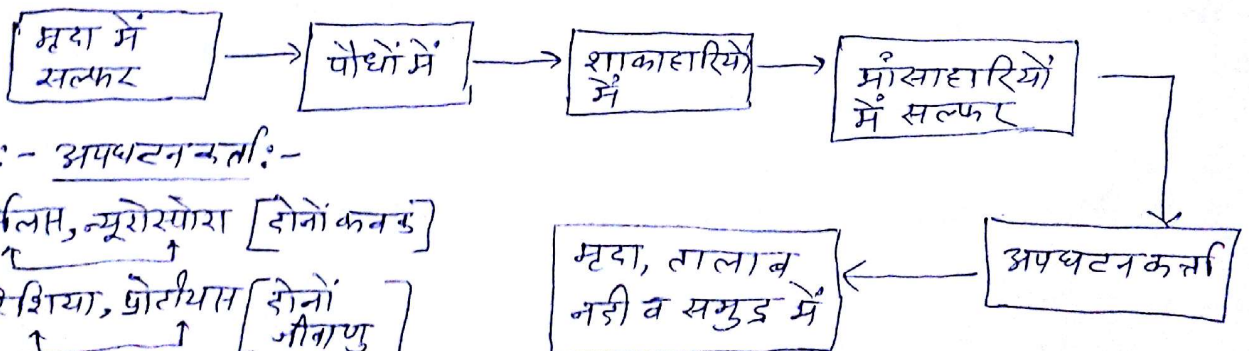 मृदा में
सल्फर
पौधों में
शाकाहारियों
में
मांसाहारियों
में सल्फर
:- अपघटनकर्ता:-
लिस, न्यूरोस्पोरा [दोनों कवक]
शिया, प्रोटीयस [दोनों
जीवाणु]
अपघटनकर्ता
मृदा, तालाब
नदी व समुद्र में